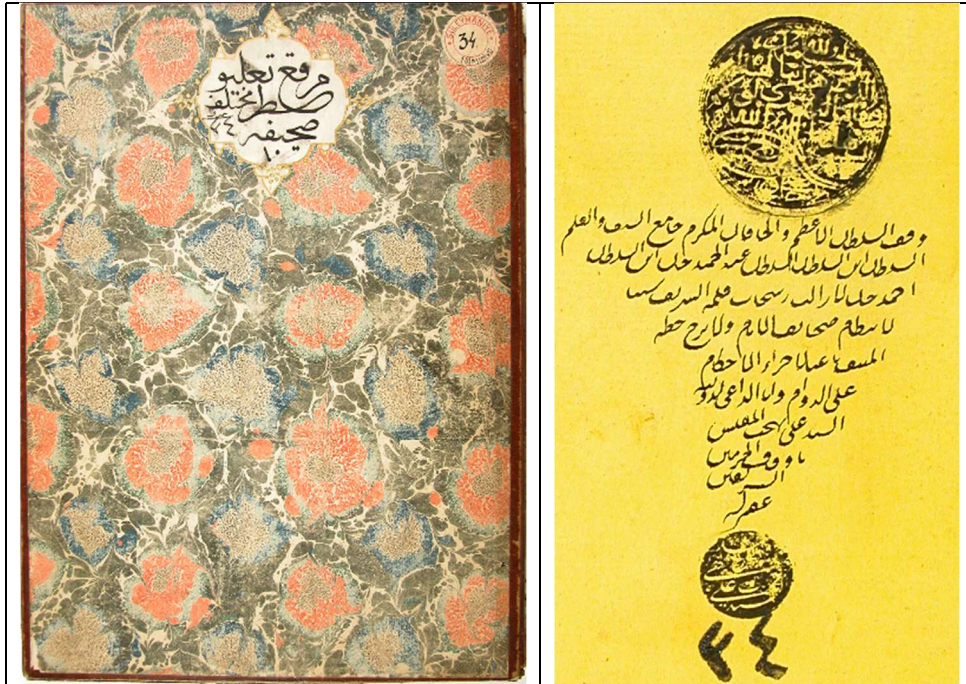 مرقع تعليق
خط مختلف
صحيفه
١٠
٣٤
SÜLEYMANİYE
34
وقف السلطان الاعظم والخاقان المكرم جامع السيف والقلم
السلطان ابن السلطان السلطان عبد الحميد خان ابن السلطان
احمد خان لا زالت رشحات قلمه الشريف سببا
لانتظام صحائف الانام ولا برح خطه
المنيف عنانا لاجراء الاحكام
على الدوام وانا الداعى لدولته
السيد على بهجت المفتش
باوقاف الحرمين
الشريفين
غفر له
٣٤